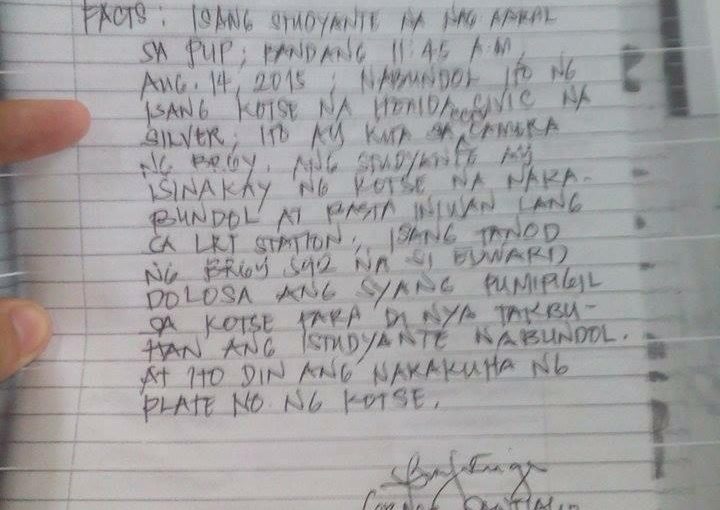 FACTS: ISANG STUDYANTE NA NAG AARAL
SA PUP; BANDANG 11:45 A.M,
AUG. 14, 2015; NABUNDOL ITO NG
ISANG KOTSE NA HONDA CIVIC NA
SILVER; ITO AY KUHA SA CCTV CAMERA
NG BRGY. ANG STUDYANTE AY
ISINAKAY NG KOTSE NA NAKA-
BUNDOL AT BASTA INIWAN LANG
SA LRT STATION; ISANG TANOD
NG BRGY 592 NA SI EDWARD
DOLOSA ANG SYANG PUMIPIGIL
SA KOTSE PARA DI NYA TAKBU-
HAN ANG ISTUDYANTE NABUNDOL.
AT ITO DIN ANG NAKAKUHA NG
PLATE NO. NG KOTSE.